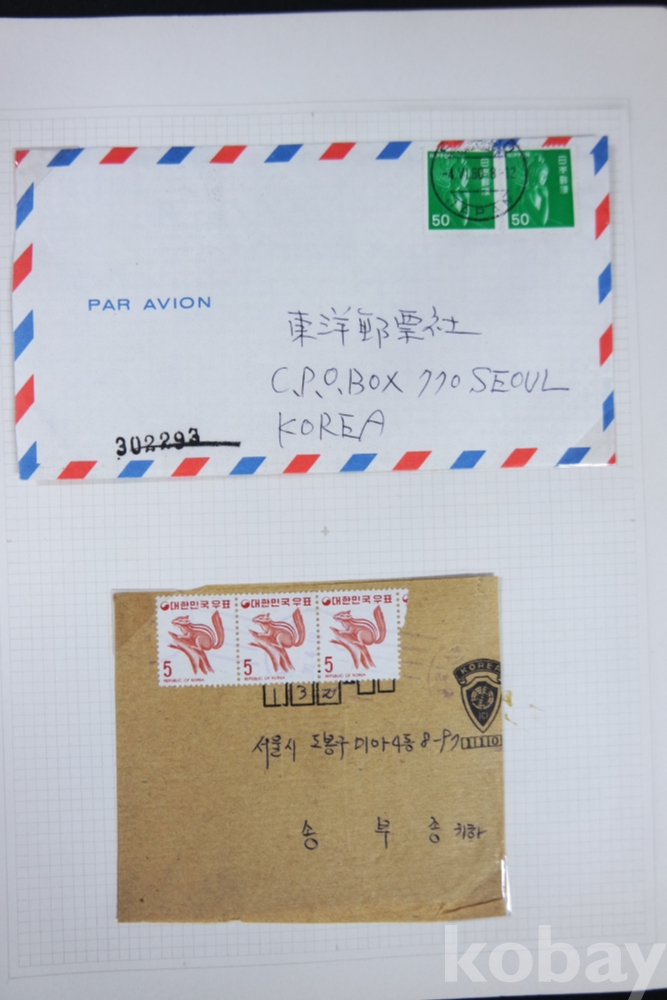 日本郵便
日本郵便
50
50
PAR AVION
東洋郵票社
C.P.O.BOX 770 SEOUL
KOREA
302293
대한민국우표
대한민국우표
대한민국우표
5
5
5
REPUBLIC OF KOREA
REPUBLIC OF KOREA
REPUBLIC OF KOREA
1 3 2
KOREA
서울시 도봉구 미아4동 8-97
송 부 종 귀하
kobay